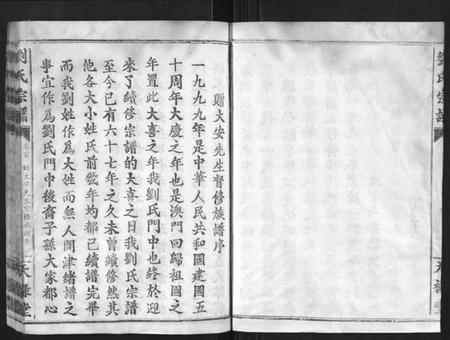 贈大安先生督修族譜序
一九九九年是中華人民共和國建國五
十周年大慶之年也是澳門回歸祖國之
年置此大喜之年我劉氏門中也終於迎
來了續修宗譜的大喜之日我劉氏宗譜
至今已有六十七年之久未曾續修然其
他各大小姓氏前幾年均都已續譜完畢
而我劉姓作爲大姓而無人問津緒譜之
事宜作爲劉氏門中後裔子孫大家都心
劉氏宗譜